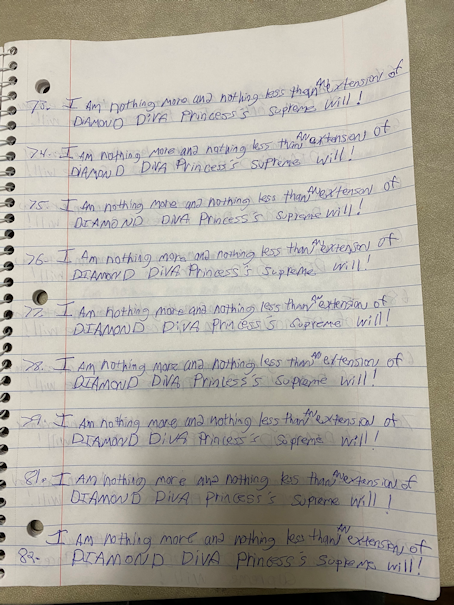 73. I Am nothing more and nothing less than AN extension of
DIAMOND DiVA Princess's Supreme Will!
74. I Am nothing more and nothing less than AN extension of
DIAMOND DiVA Princess's Supreme Will!
75. I Am nothing more and nothing less than AN extension of
DIAMOND DiVA Princess's Supreme Will!
76. I Am nothing more and nothing less than AN extension of
DIAMOND DiVA Princess's Supreme Will!
77. I Am nothing more and nothing less than AN extension of
DIAMOND DiVA Princess's Supreme Will!
78. I Am nothing more and nothing less than AN extension of
DIAMOND DiVA Princess's Supreme Will!
79. I Am nothing more and nothing less than AN extension of
DIAMOND DiVA Princess's Supreme Will!
81. I Am nothing more and nothing less than AN extension of
DIAMOND DiVA Princess's Supreme Will!
I Am nothing more and nothing less than AN extension of
82. DIAMOND DiVA Princess's Supreme Will!